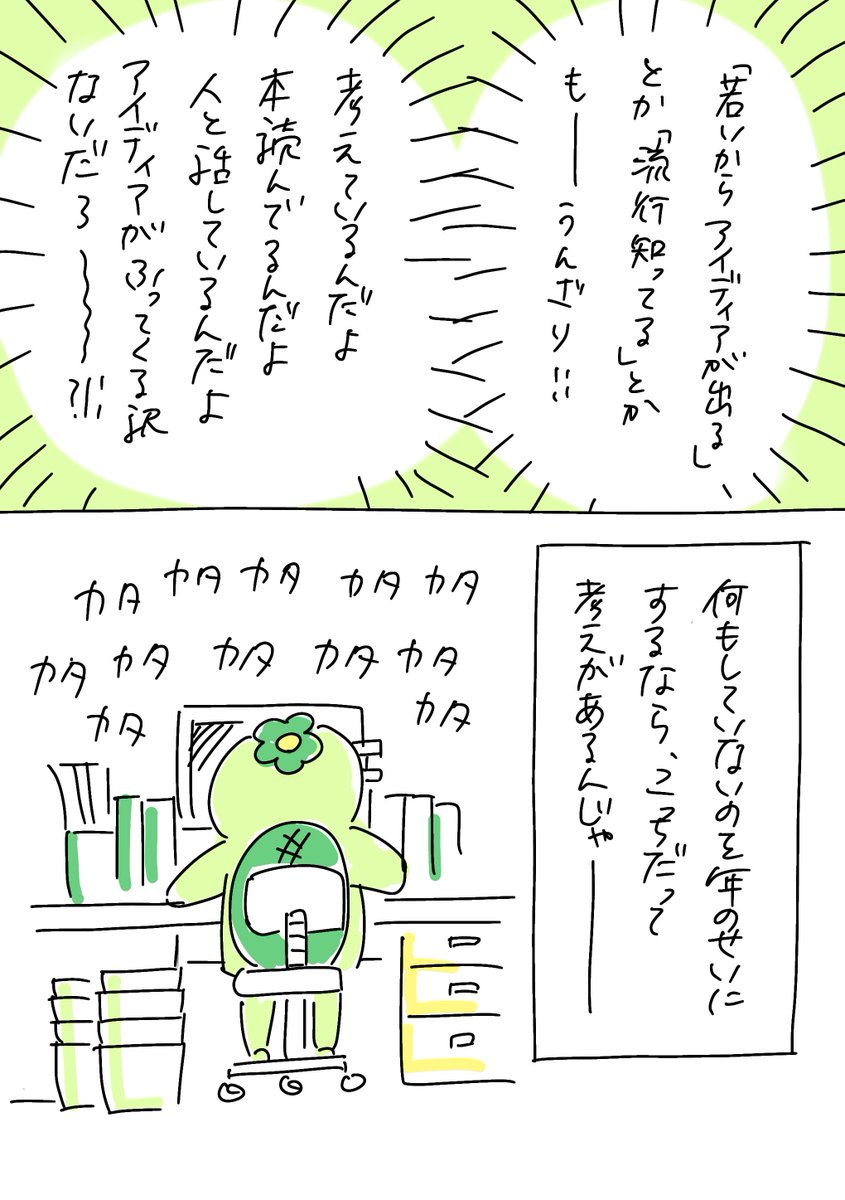 「若いからアイディアが出る」
とか「流行知ってる」とか
も――うんざり!!
考えているんだよ
本読んでるんだよ
人と話しているんだよ
アイディアがふってくる訳
ないだろ〜〜〜〜?!!
何もしていないのを年のせいに
するなら、こっちだって
考えがあるんじゃ―――
カタ
カタ
カタ
カタ
カタ
カタ
カタ
カタ
カタ
カタ
カタ
カタ